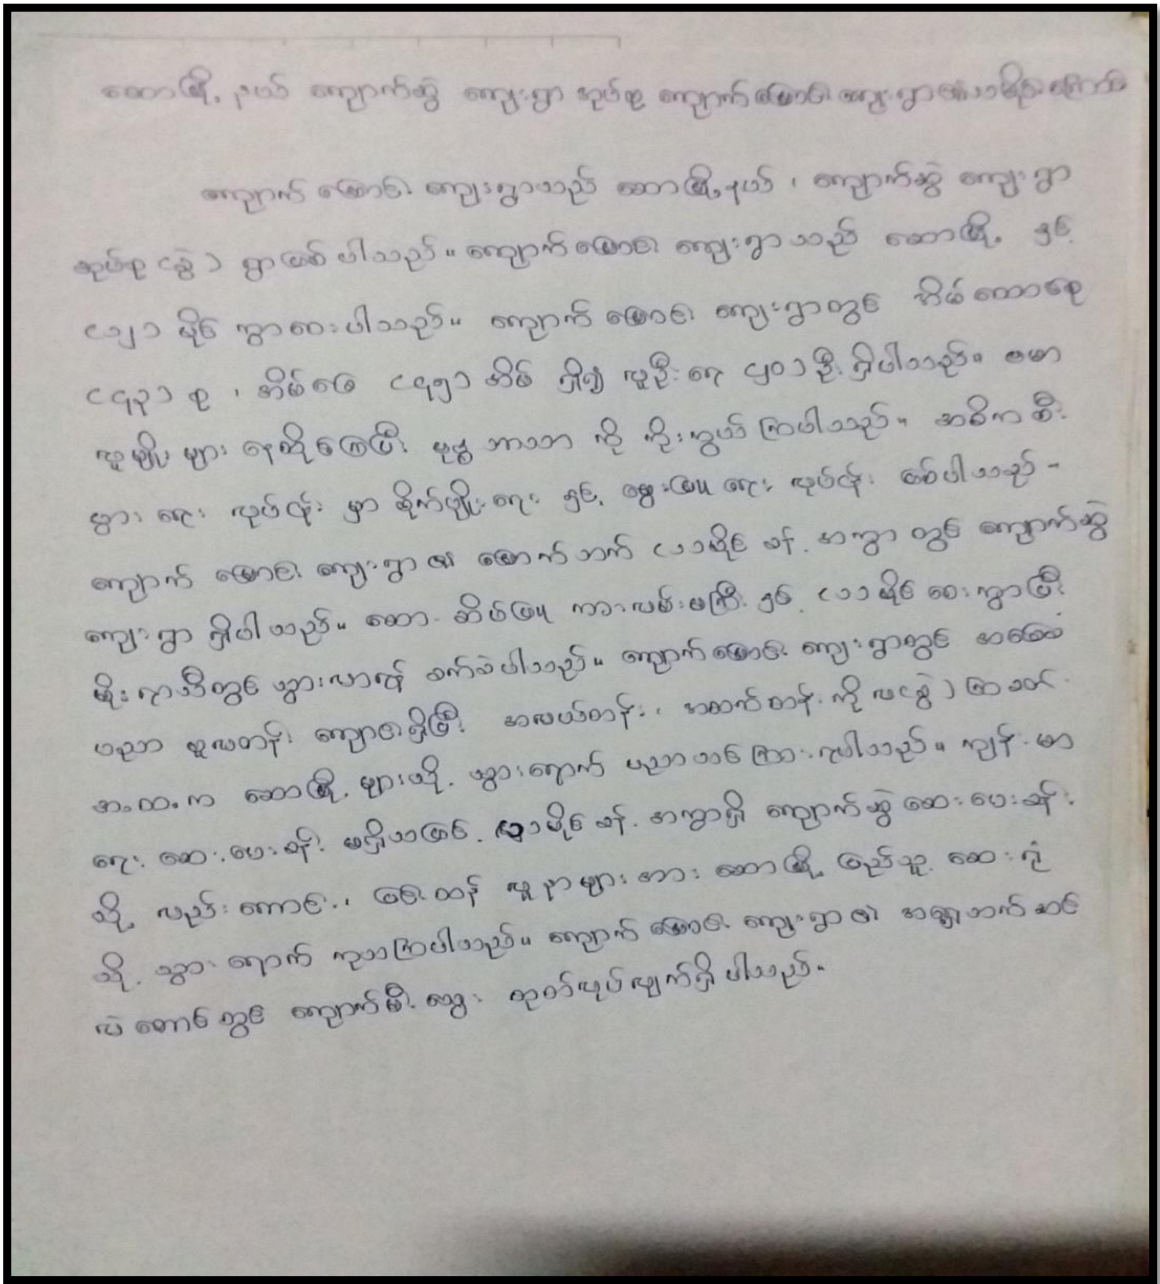 ဆောမြို့နယ် ကျောက်ဆွဲ ကျေးရွာ အုပ်စု ကျောက်မြောင်း ကျေးရွာ၏
ကျောက်မြောင်း ကျေးရွာသည် ဆောမြို့နယ် ၊ ကျောက်ဆွဲ ကျေးရွာ
အုပ်စု (နွဲ့) ရွာဖြစ်ပါသည်။ ကျောက်မြောင်း ကျေးရွာသည် ဆောမြို့ နှင့်
မိုင် ကွာဝေးပါသည်။ ကျောက်မြောင်း ကျေးရွာတွင် အိမ်ထောင်စု
စု ၊ အိမ်ခြေ အိမ် ရှိ၍ လူဦးရေ ဦး ရှိပါသည်။ ဗမာ
လူမျိုးများ နေထိုင်ကြပြီး ဗုဒ္ဓ ဘာသာ ကို ကိုးကွယ် ကြပါသည်။ အဓိက စီး
ပွား ရေး လုပ်ငန်း မှာ စိုက်ပျိုးရေး နှင့် မွေးမြူရေး လုပ်ငန်း ဖြစ်ပါသည်။
ကျောက်မြောင်း ကျေးရွာ၏ မြောက်ဘက် (၁) မိုင် ခန့် အကွာ တွင် ကျောက်ဆွဲ
ကျေးရွာ ရှိပါသည်။ ဆော- ထိမ်မြူ ကားလမ်းမကြီး နှင့် (၁) မိုင် ဝေးကွာပြီး
မိုးရာသီတွင် သွားလာရန် ခက်ခဲပါသည်။ ကျောက်မြောင်း ကျေးရွာတွင် အခြေခံ
ပညာ မူလတန်း ကျောင်းရှိပြီး အလယ်တန်း ၊ အထက်တန်း ကို လ(နွဲ့)
အ.ထ.က ဆောမြို့ များသို့ သွားရောက် ပညာသင်ကြားရပါသည်။ ကျန်းမာ
ရေး ဆေးပေးခန်း မရှိသဖြင့် မိုင် ခန့် အကွာရှိ ကျောက်ဆွဲ ဆေးပေးခန်း
သို့ လည်းကောင်း၊ ပြင်းထန် လူနာများ အား ဆောမြို့ ပြည်သူ့ ဆေးရုံ
သို့ သွားရောက် ကုသကြပါသည်။ ကျောက်မြောင်း ကျေးရွာ၏ အရှေ့ဘက် ဆင်
လဲ တောင် တွင် ကျောက်မီးသွေး ထုတ်လုပ်လျက်ရှိပါသည်။